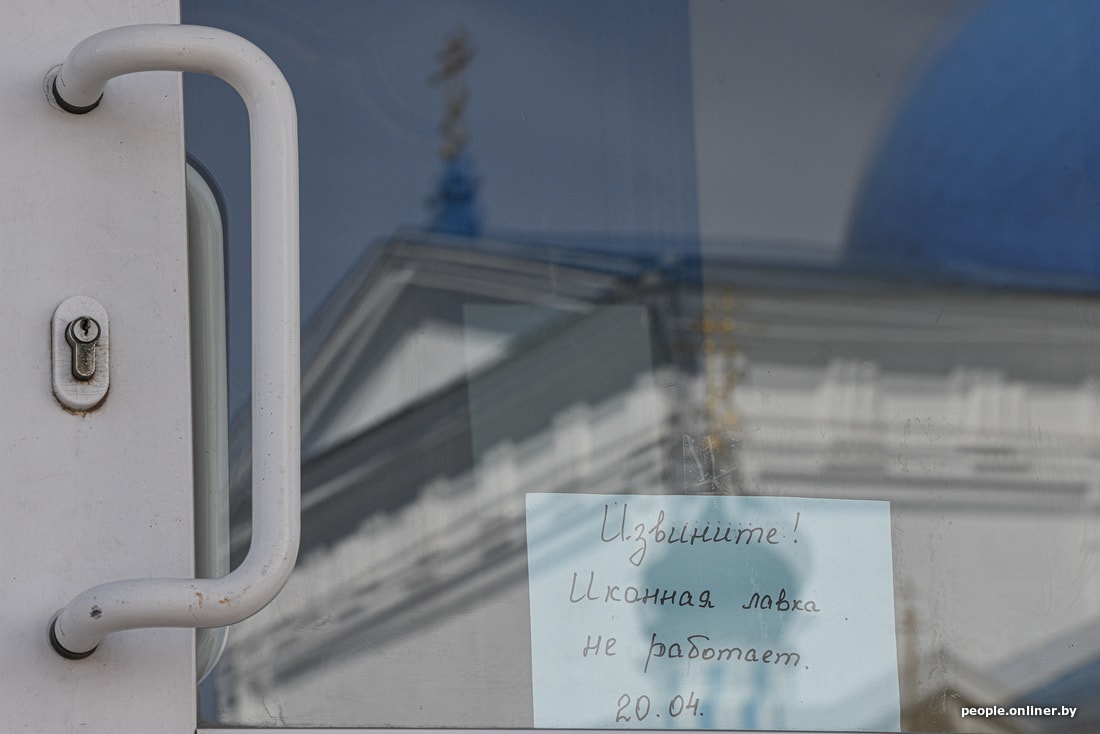 Извините!
Иконная лавка
не работает.
20.04.
people.onliner.by